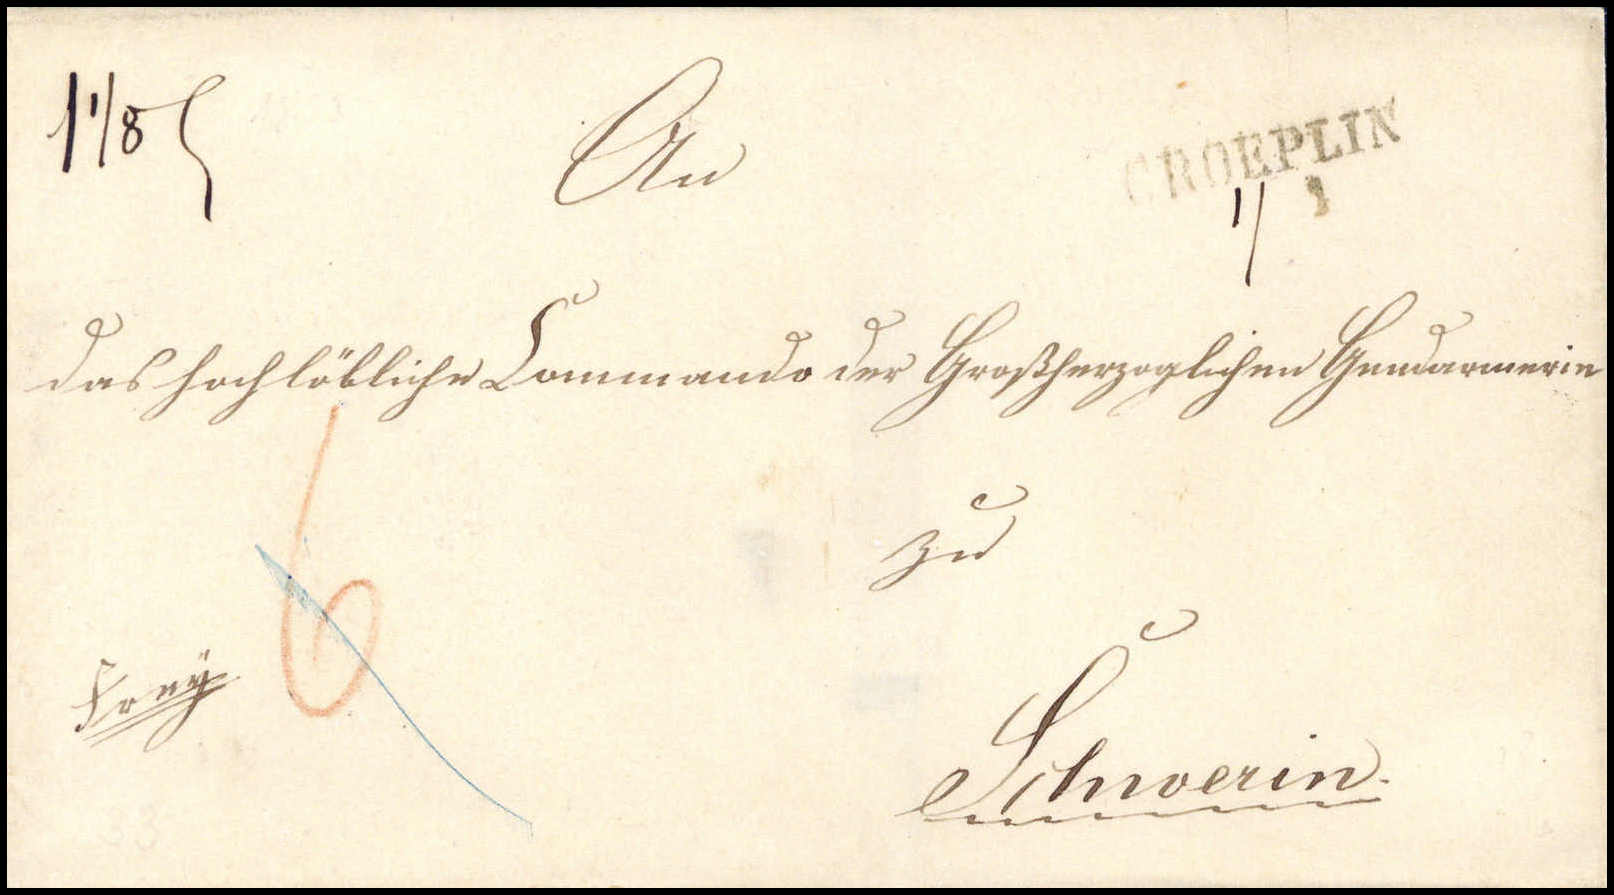 1 1/8
An
CROEPLIN
1/ 1
das hochlöbliche Commando der Großherzoglichen Gendarmerie
6
zu
frey
Schwerin.